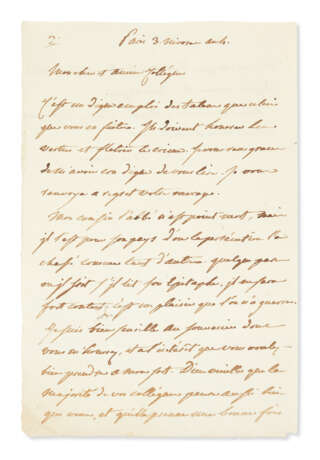 Paris 3 nivose an 4.
Mon cher et ancien Collègue
C'est un digne emploi des talens que celui
que vous en faites. Ils doivent honorer la
vertu et flétrir le crime. Je vous rends grace
de m'avoir cru digne de vous lire. Je vous
renvoye a regret votre ouvrage.
Mon cousin l'abbé n'est point mort, mais
il n'est pas au pays d'où la persécution l'a
chassé comme tant d'autres quelque part
où il soit s'il lit son Epitaphe, il en sera
fort content, c'est un plaisir que l'on n'a guere.
Je suis bien sensible au souvenir dont
vous m'honorez, et a l'intérêt que vous voulez
bien prendre a mon sort. Dieu veuille que la
majorité de vos collègues pense aussi bien
que vous, et qu'elle prenne une bonne fois